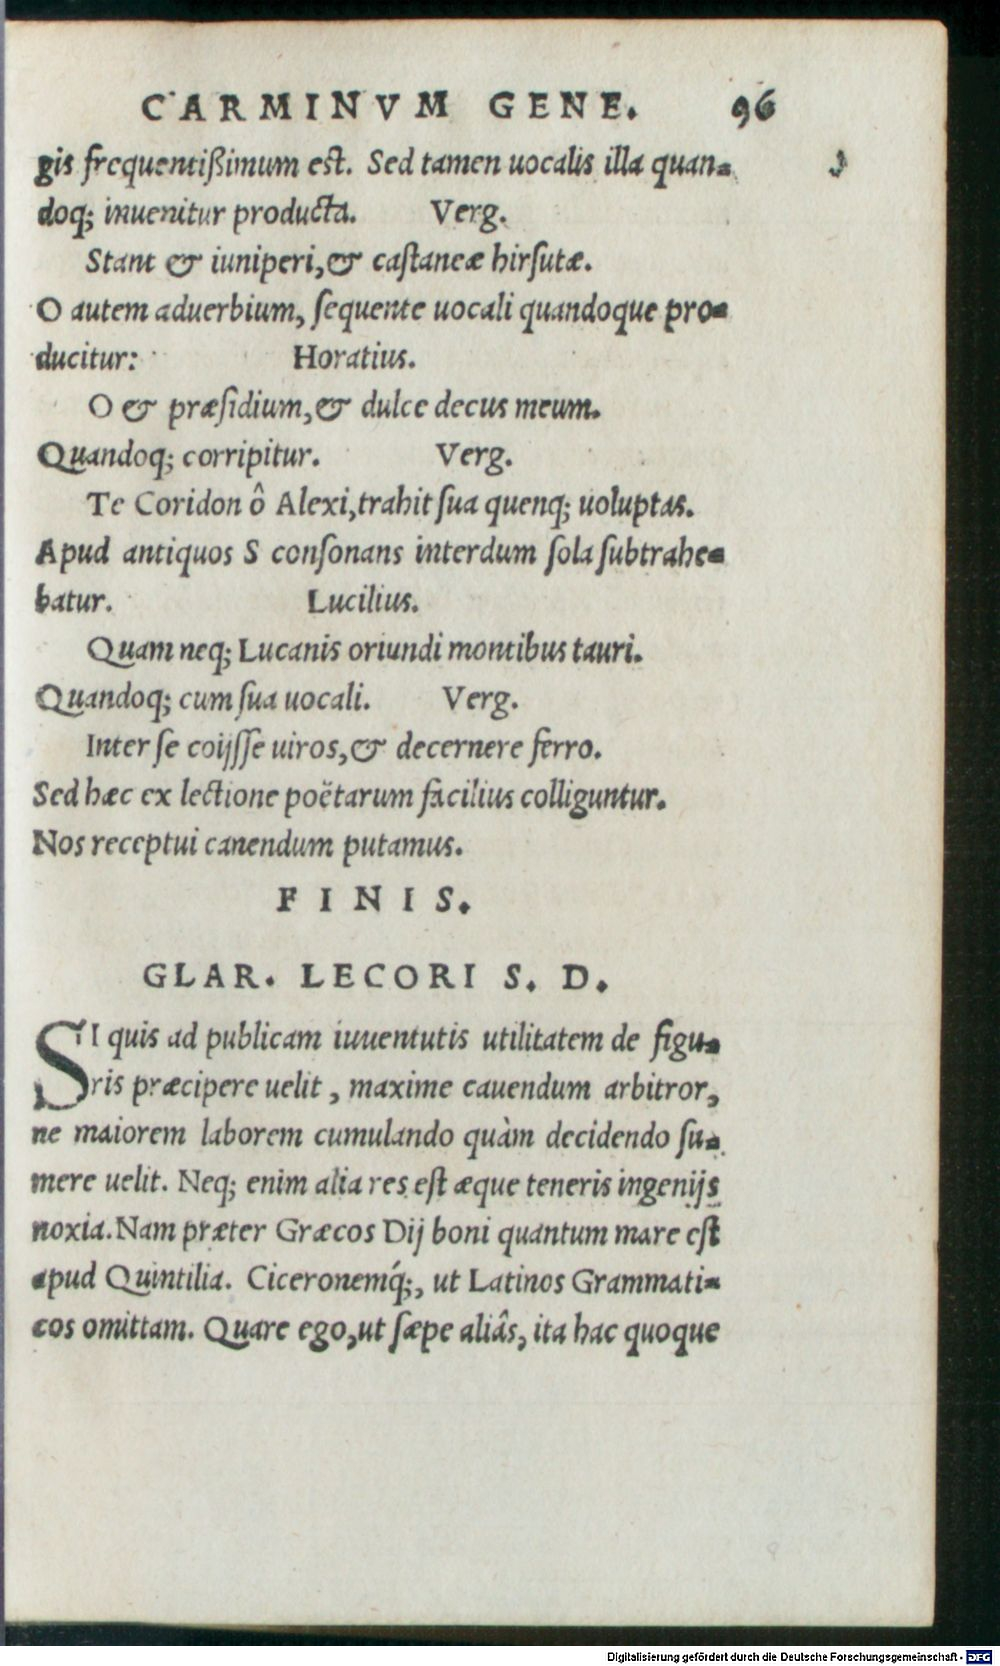 CARMINVM GENE. 96
gis frequentißimum est. Sed tamen uocalis illa quan-
doq; inuenitur producta. Verg.
Stant & iuniperi, & castaneæ hirsutæ.
O autem aduerbium, sequente uocali quandoque pro-
ducitur: Horatius.
O & præsidium, & dulce decus meum.
Quandoq; corripitur. Verg.
Te Coridon ô Alexi, trahit sua quenq; uoluptas.
Apud antiquos S consonans interdum sola subtrahe-
batur. Lucilius.
Quam neq; Lucanis oriundi montibus tauri.
Quandoq; cum sua uocali. Verg.
Inter se coijsse uiros, & decernere ferro.
Sed hæc ex lectione poëtarum facilius colliguntur.
Nos receptui canendum putamus.
FINIS.
GLAR. LECORI S. D.
SI quis ad publicam iuuentutis utilitatem de figu-
ris præcipere uelit, maxime cauendum arbitror,
ne maiorem laborem cumulando quàm decidendo su-
mere uelit. Neq; enim alia res est æque teneris ingenijs
noxia. Nam præter Græcos Dij boni quantum mare est
apud Quintilia. Ciceronemq́;, ut Latinos Grammati-
cos omittam. Quare ego, ut sæpe aliâs, ita hac quoque
Digitalisierung gefördert durch die Deutsche Forschungsgemeinschaft - DFG